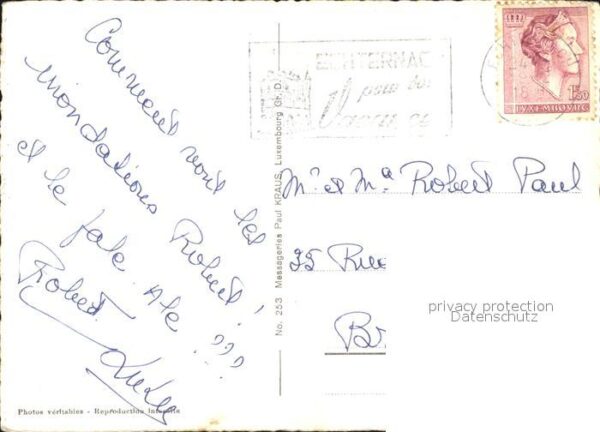 Comment vont les
inondations Robert!
et le pale Ale ???
Robert
ECHTERNAC
pour vos
Vacances
LUXEMBOURG
1F50
No. 253 Messageries Paul KRAUS, Luxembourg Gr. D.
Mr et Ma Robert Paul
35 Rue
Br
privacy protection
Datenschutz
Photos véritables - Reproduction Interdite